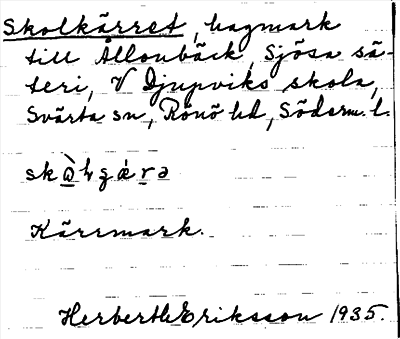 Skolkärret, hagmark
till Ållonbäck, Sjösa sä-
teri, V Djupviks skola,
Svärta sn, Rönö hd, Söderm. l.
Kärrmark.
Herbert Eriksson 1935.